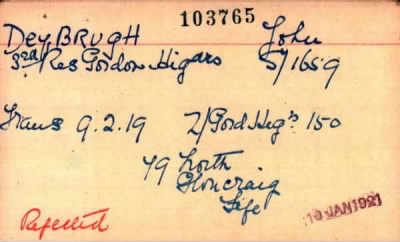 103765
Dey, BRUGH John
3rd/Res Gordon Higrs S/1659
Trans 9.2.19 2/Gord Hig's 150
79 North
Glencraig
Fife
10 JAN 1921
Rejected